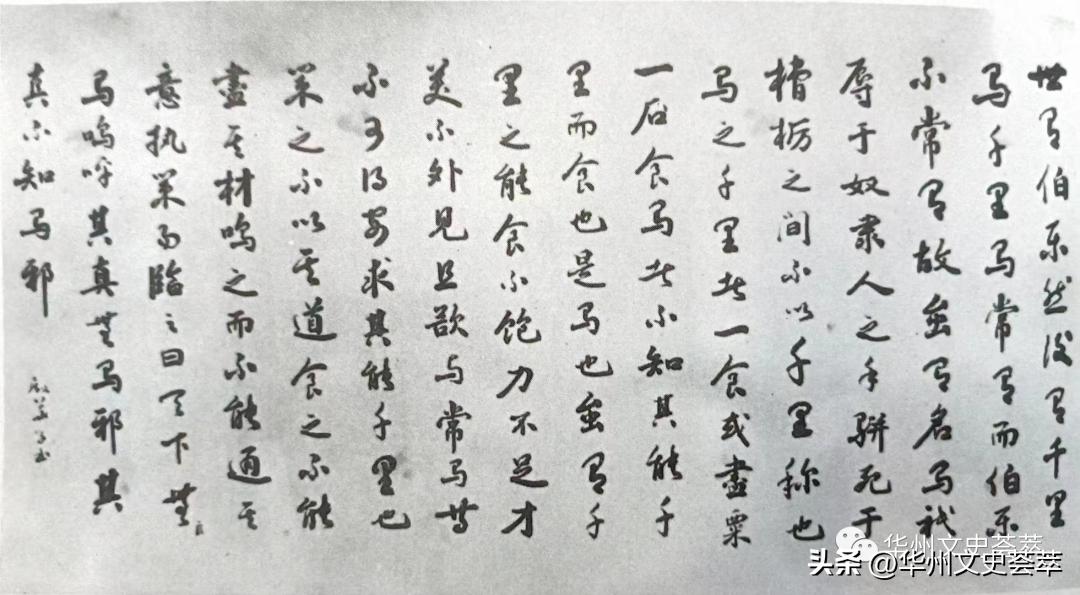 世有伯乐然後有千里
马千里马常有而伯乐
不常有故虽有名马祇
辱于奴隶人之手骈死于
槽枥之间不以千里称也
马之千里者一食或盡粟
一石食马者不知其能千
里而食也是马也虽有千
里之能食不饱力不足才
美不外见且欲与常马等
不可得安求其能千里也
策之不以其道食之不能
盡其材鸣之而不能通其
意执策而临之曰天下無
马呜呼其真無马邪其
真不知马邪
华州文史荟萃
头条 @华州文史荟萃